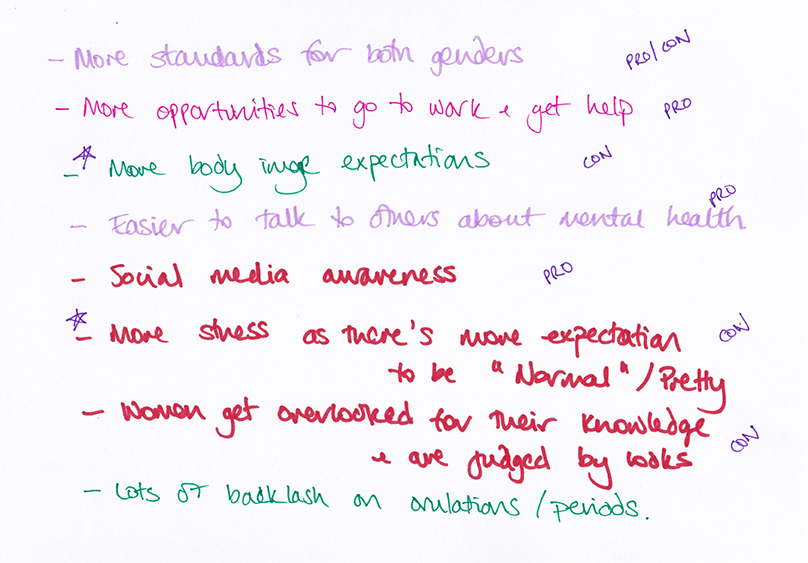 - More standards for both genders PRO/CON
- More opportunities to go to work & get help PRO
- More body image expectations CON
- Easier to talk to others about mental health PRO
- Social media awareness PRO
- More stress as there's more expectation CON
to be "Normal"/Pretty
- Women get overlooked for their knowledge
& are judged by looks CON
- Lots of backlash on ovulations/periods.